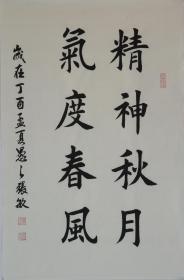 精神秋月
氣度春風
歲在丁酉孟夏愚之張敏